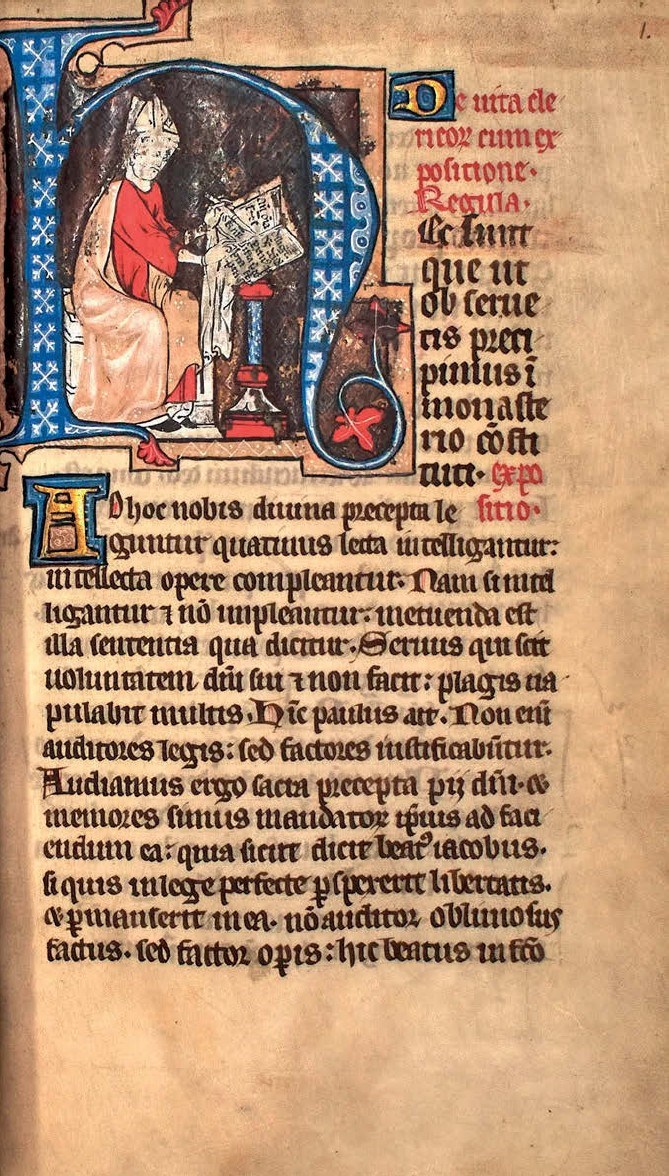 1.
De uita cle
ricoꝝ cum ex
positione.
Regula.
Hec sunt
que ut
obserue
tis preci
pimus ī
monaste
rio cōsti
tuti. expo
sitio.
Ad hoc nobis diuina precepta le
guntur quatinus lecta intelligantur:
intellecta opere compleantur. Nam si intel
ligantur ⁊ nō impleantur: metuenda est
illa sententia qua dicitur. Seruus qui scit
uoluntatem dn̄i sui ⁊ non facit: plagis ua
pulabit multis. Hīc paulus ait. Non eni̅
auditores legis: sed factores iustificabūtur.
Audiamus ergo sacra precepta pij dn̄i. ⁊
memores simus mandatoꝝ ip̄ius ad faci
endum ea: quia sicut dicit beatꝰ iacobus.
si quis in lege perfecte ꝑspexerit libertatis.
⁊ ꝑmanserit in ea. nō auditor obliuiosus
factus. sed factor oꝑis: hic beatus in fc̄o